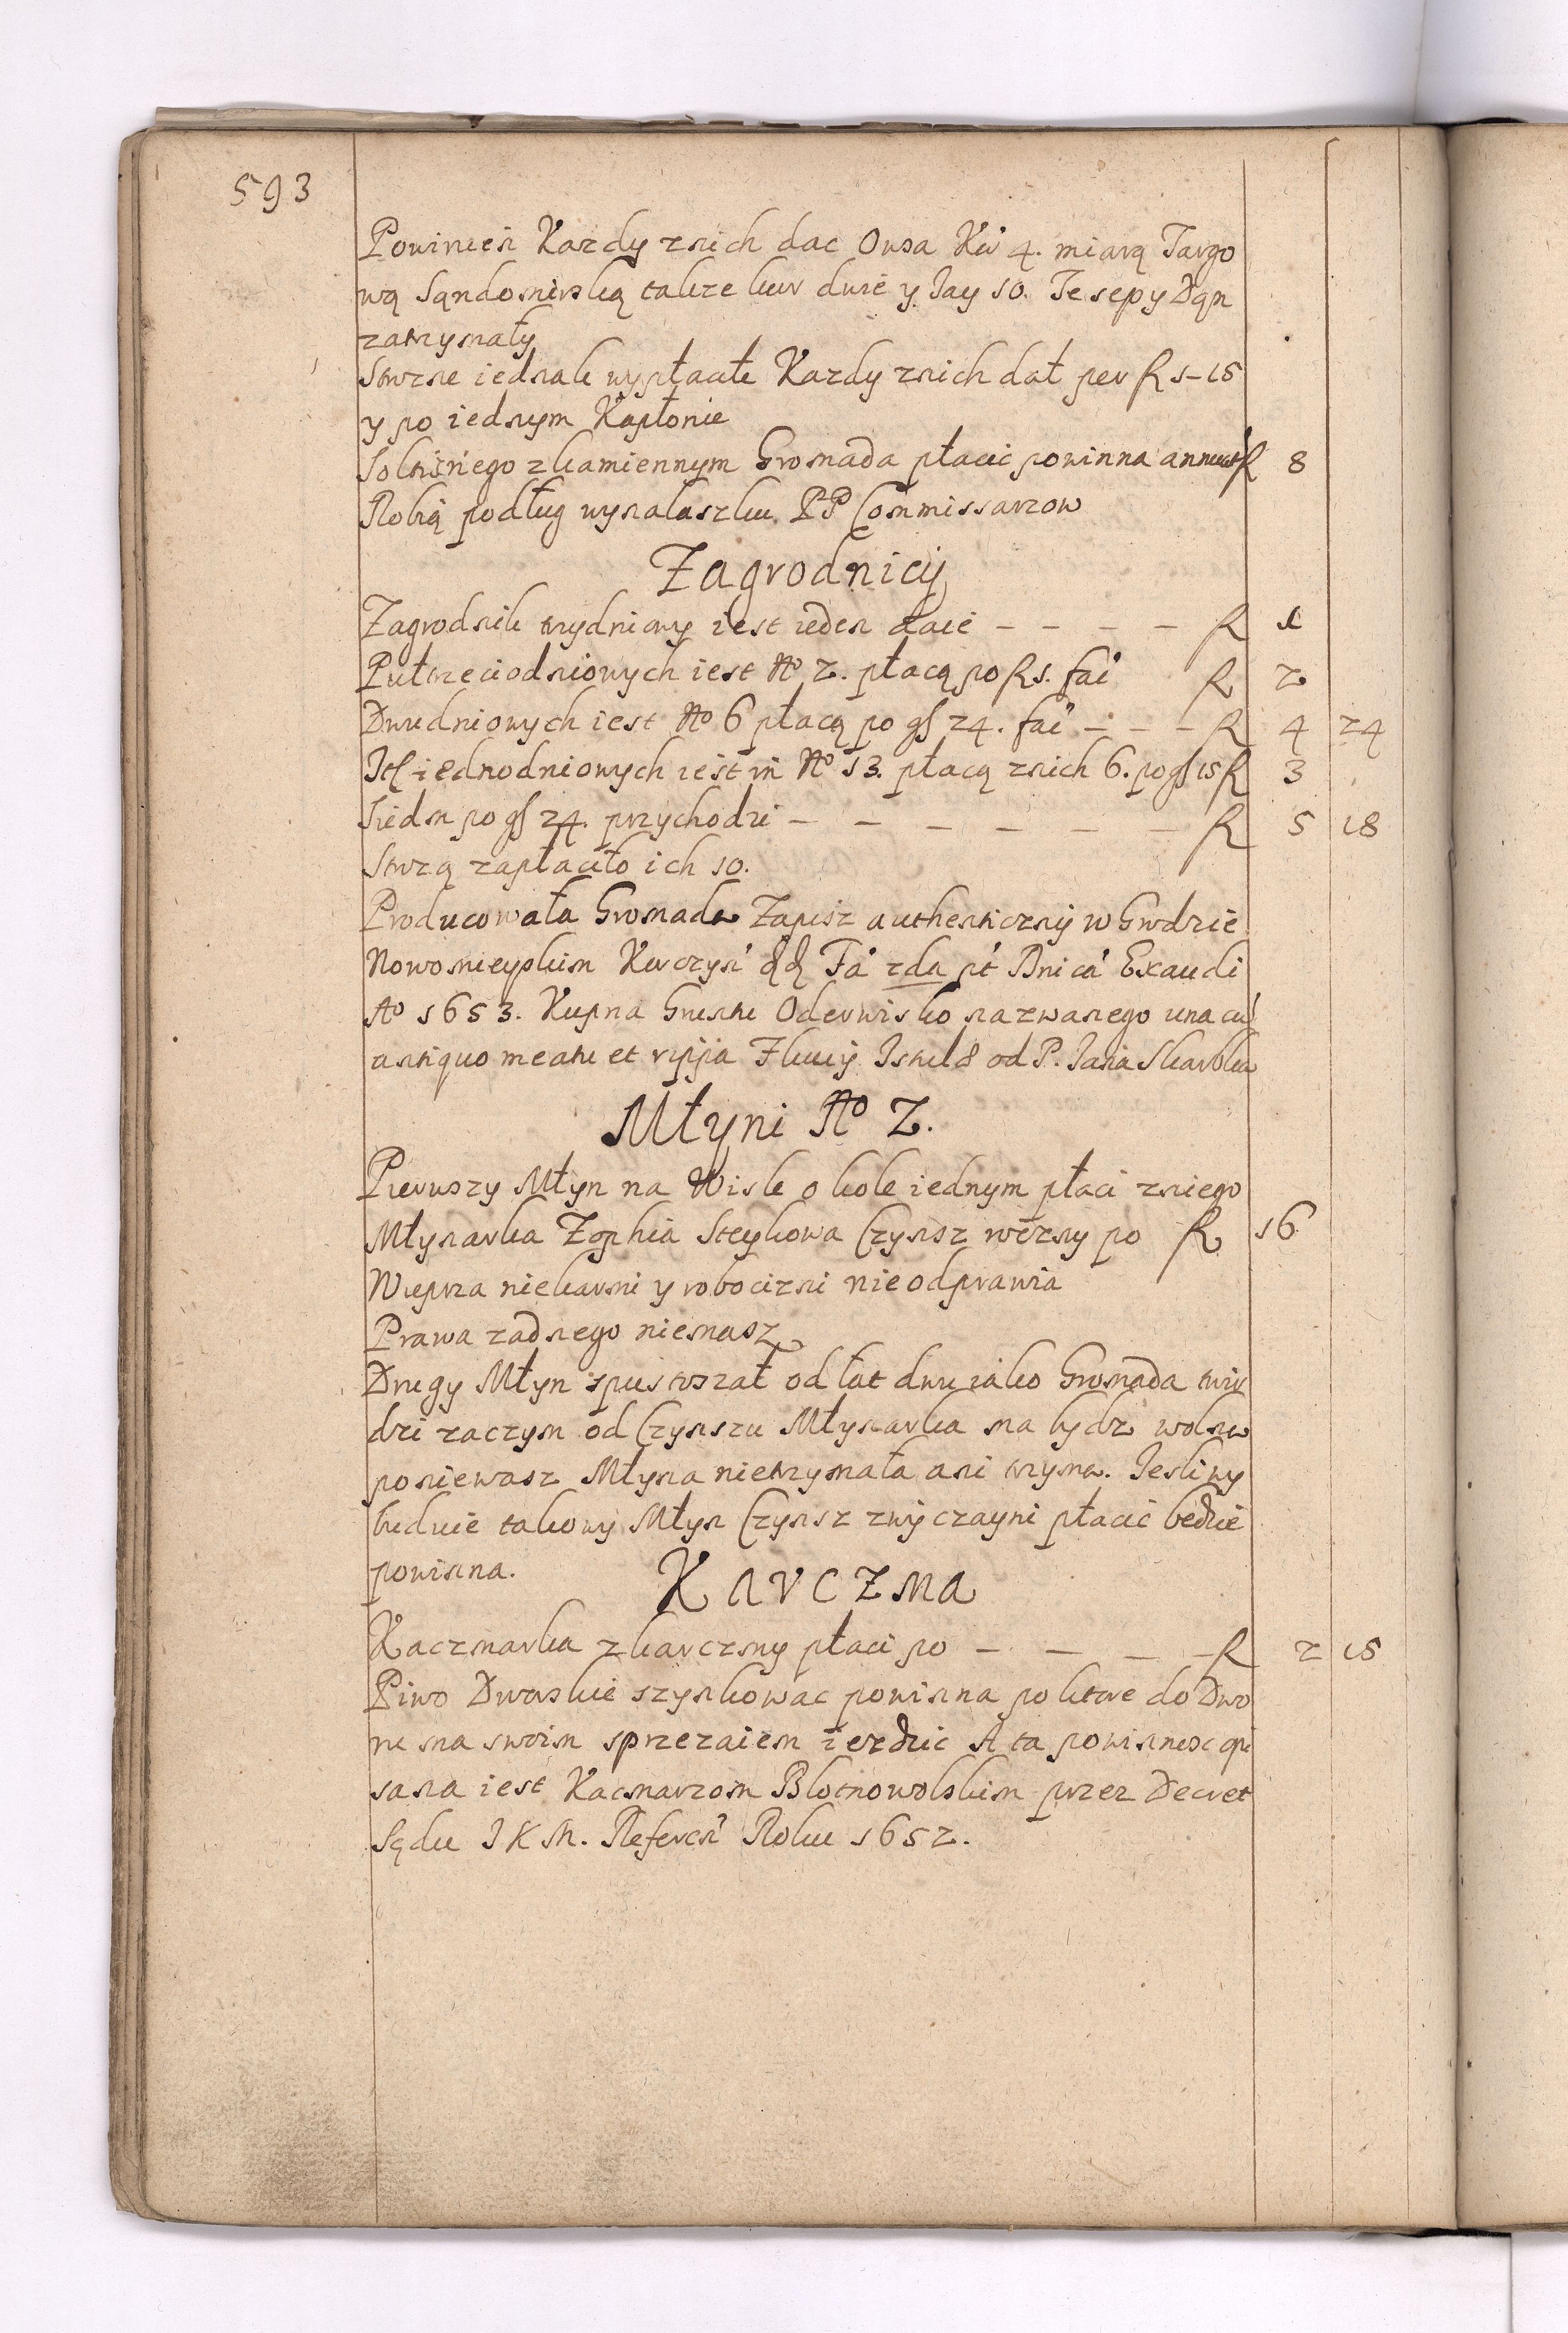 593
Powinien Kazdy znich dac Owsa Ku 4. miarą Targo
wą Sąndomirską takze kur dwie y Iay 10. Te sepy Dąn
zatrzymały
Stwrzne iednak wypłaciłe Kazdy znich dał per R 1-15
y po iednym Kapłonie
Soltisiego zkamiennym Gromada płacic powinna annuat R 8
Robią podług wynalaszku PP Commissarzow
Zagrodnicij
Zagrodnik trzydniowy iest ieden daie – – – – R 1
Pułtrzeciodniowych iest No 2. płacą po R 1. fai R 2
Dwudniowych iest No 6 płacą po gſ 24. fai – – – R 4 24
Itſ iednodniowych iest in No 13. płacą znich 6. po gſ 15 R 3
Siedm po gſ 24. przychodzi – – – – – – R 5 18
Stwrzą zapłaciło ich 10.
Producowała Gromada Zapisz authenticznij w Grodzie
Nowomieyskim Korczyń Fa 2da pt Dnica Exaudi
Ao 1653. Kupna Gruntu Oderwisko nazwanego una cu
antiquo meatu et ripija Fluuij Istul8 od P. Iana Skarbka
Młyni No 2.
Pierwszy Młyn na Wisle o kole iednym płaci zniego
Młynarka Zophia Steykowa Czynsz roczny po R 16
Wieprza niekarmi y robocizni nie odprawia
Prawa zadnego niemasz
Drugy Młyn spustoszał od łat dwu iako Gromada twir
dzi zaczym od Czynszu Młynarka ma bydz wolna
poniewasz Młyna nietrzymała ani trzyma. Iesli wy
buduie takowy Młyn Czynsz zwyczayni płacic bedzie
powinna.
KARCZMA
Kaczmarka zkarczmy płaci po – – – – R 2 15
Piwo Dworskie szynkowac powinna po ktore do Dwo
ru ma swoim sprzezaiem iezdzic A ta powinnosc opi
sana iest Kacmarzom Blotnowolskim przez Decret
Sędu I K M. Referen Roku 1652.